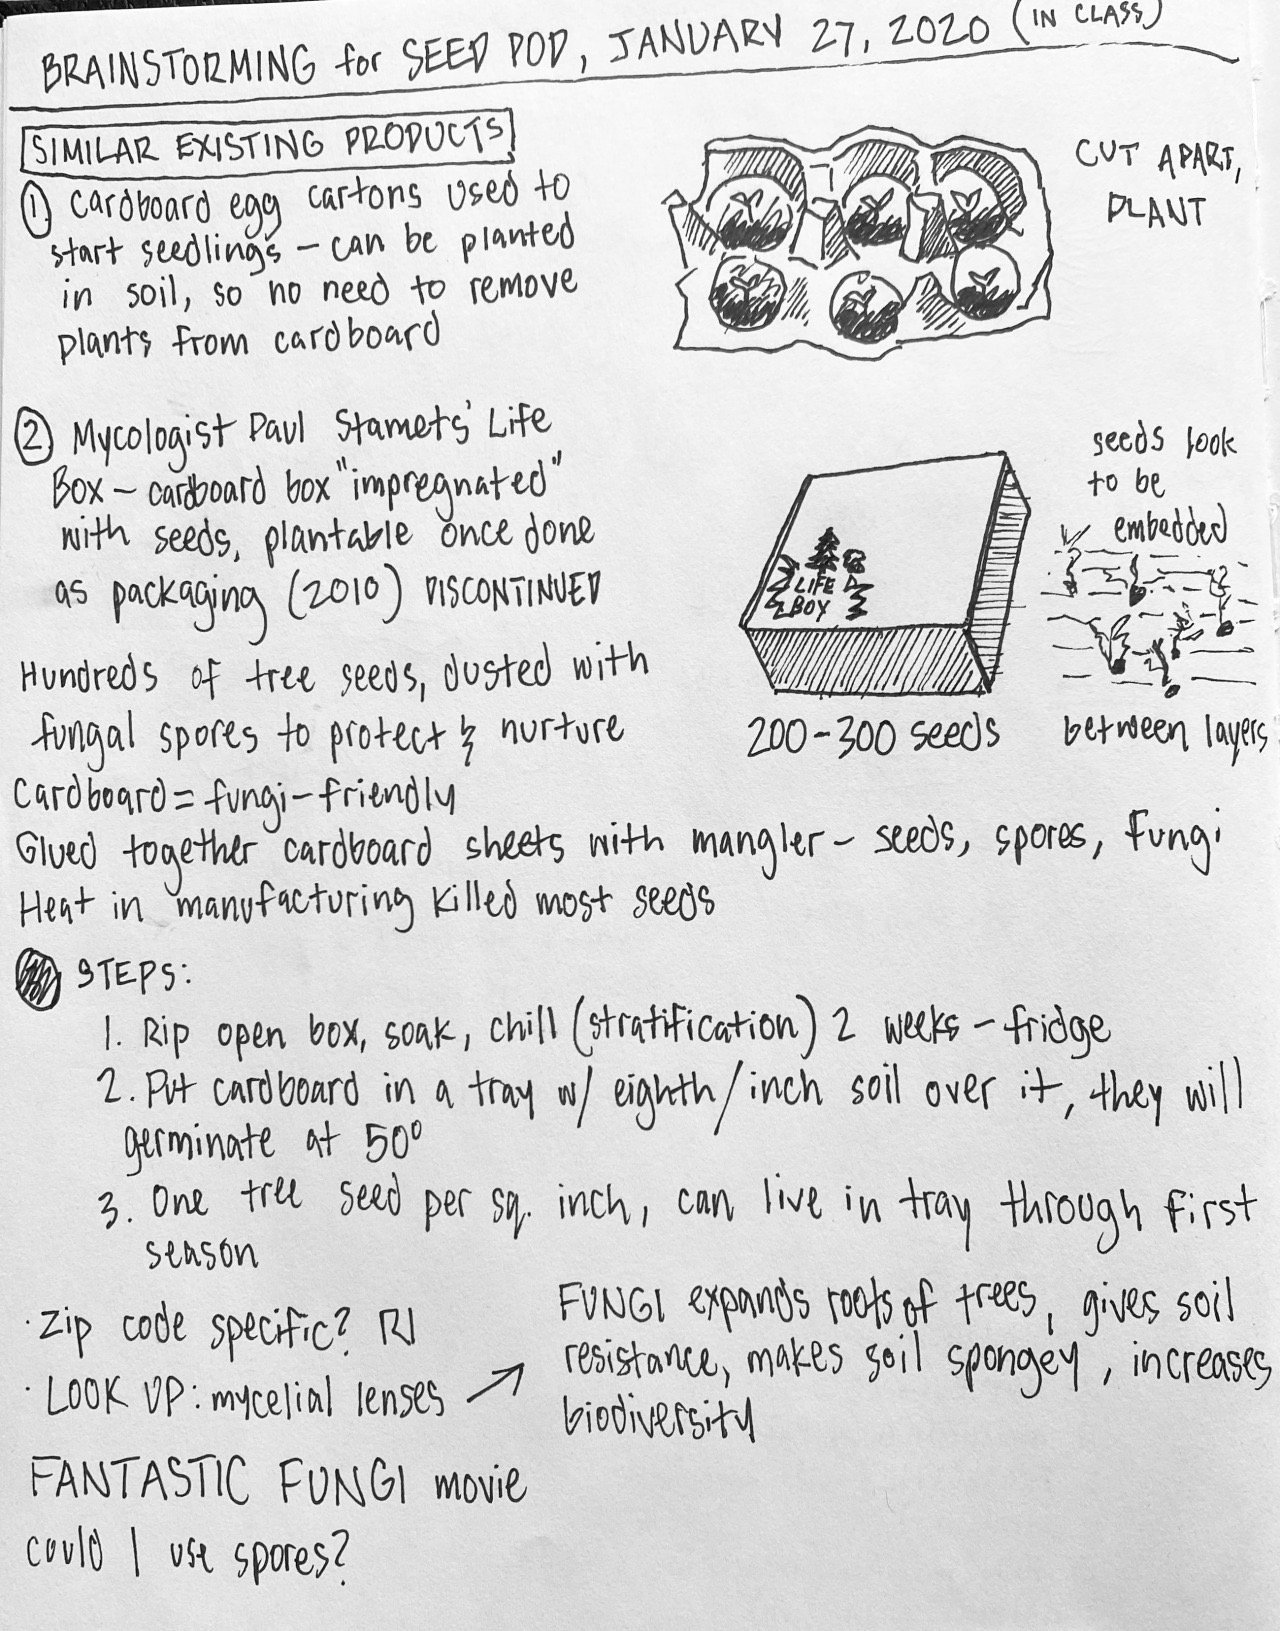 BRAINSTORMING for SEED POD, JANUARY 27, 2020 (IN CLASS)
SIMILAR EXISTING PRODUCTS
① cardboard egg cartons used to
start seedlings – can be planted
in soil, so no need to remove
plants from cardboard
CUT APART,
PLANT
② Mycologist Paul Stamets' Life
Box – cardboard box "impregnated"
with seeds, plantable once done
as packaging (2010) DISCONTINUED
LIFE
BOX
200-300 seeds
seeds look
to be
embedded
between layers
Hundreds of tree seeds, dusted with
fungal spores to protect & nurture
Cardboard = fungi-friendly
Glued together cardboard sheets with mangler – seeds, spores, fungi
Heat in manufacturing killed most seeds
STEPS:
1. Rip open box, soak, chill (stratification) 2 weeks – fridge
2. Put cardboard in a tray w/ eighth/inch soil over it, they will
germinate at 50°
3. One tree seed per sq. inch, can live in tray through first
season
· Zip code specific? RI
· LOOK UP: mycelial lenses →
FUNGI expands roots of trees, gives soil
resistance, makes soil spongey, increases
biodiversity
FANTASTIC FUNGI movie
could I use spores?